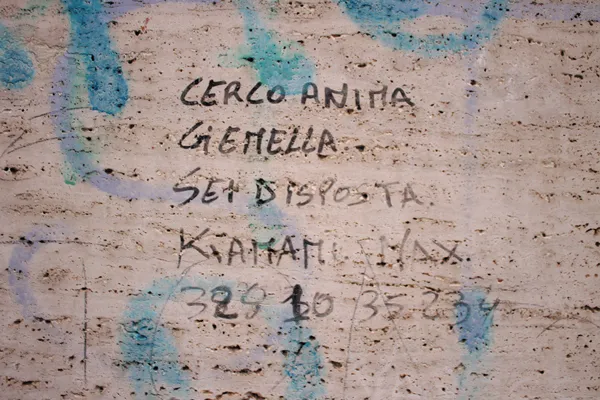 CERCO ANIMA
GEMELLA.
SEI DISPOSTA.
KIAMAMI. MAX.
329 10 35 234